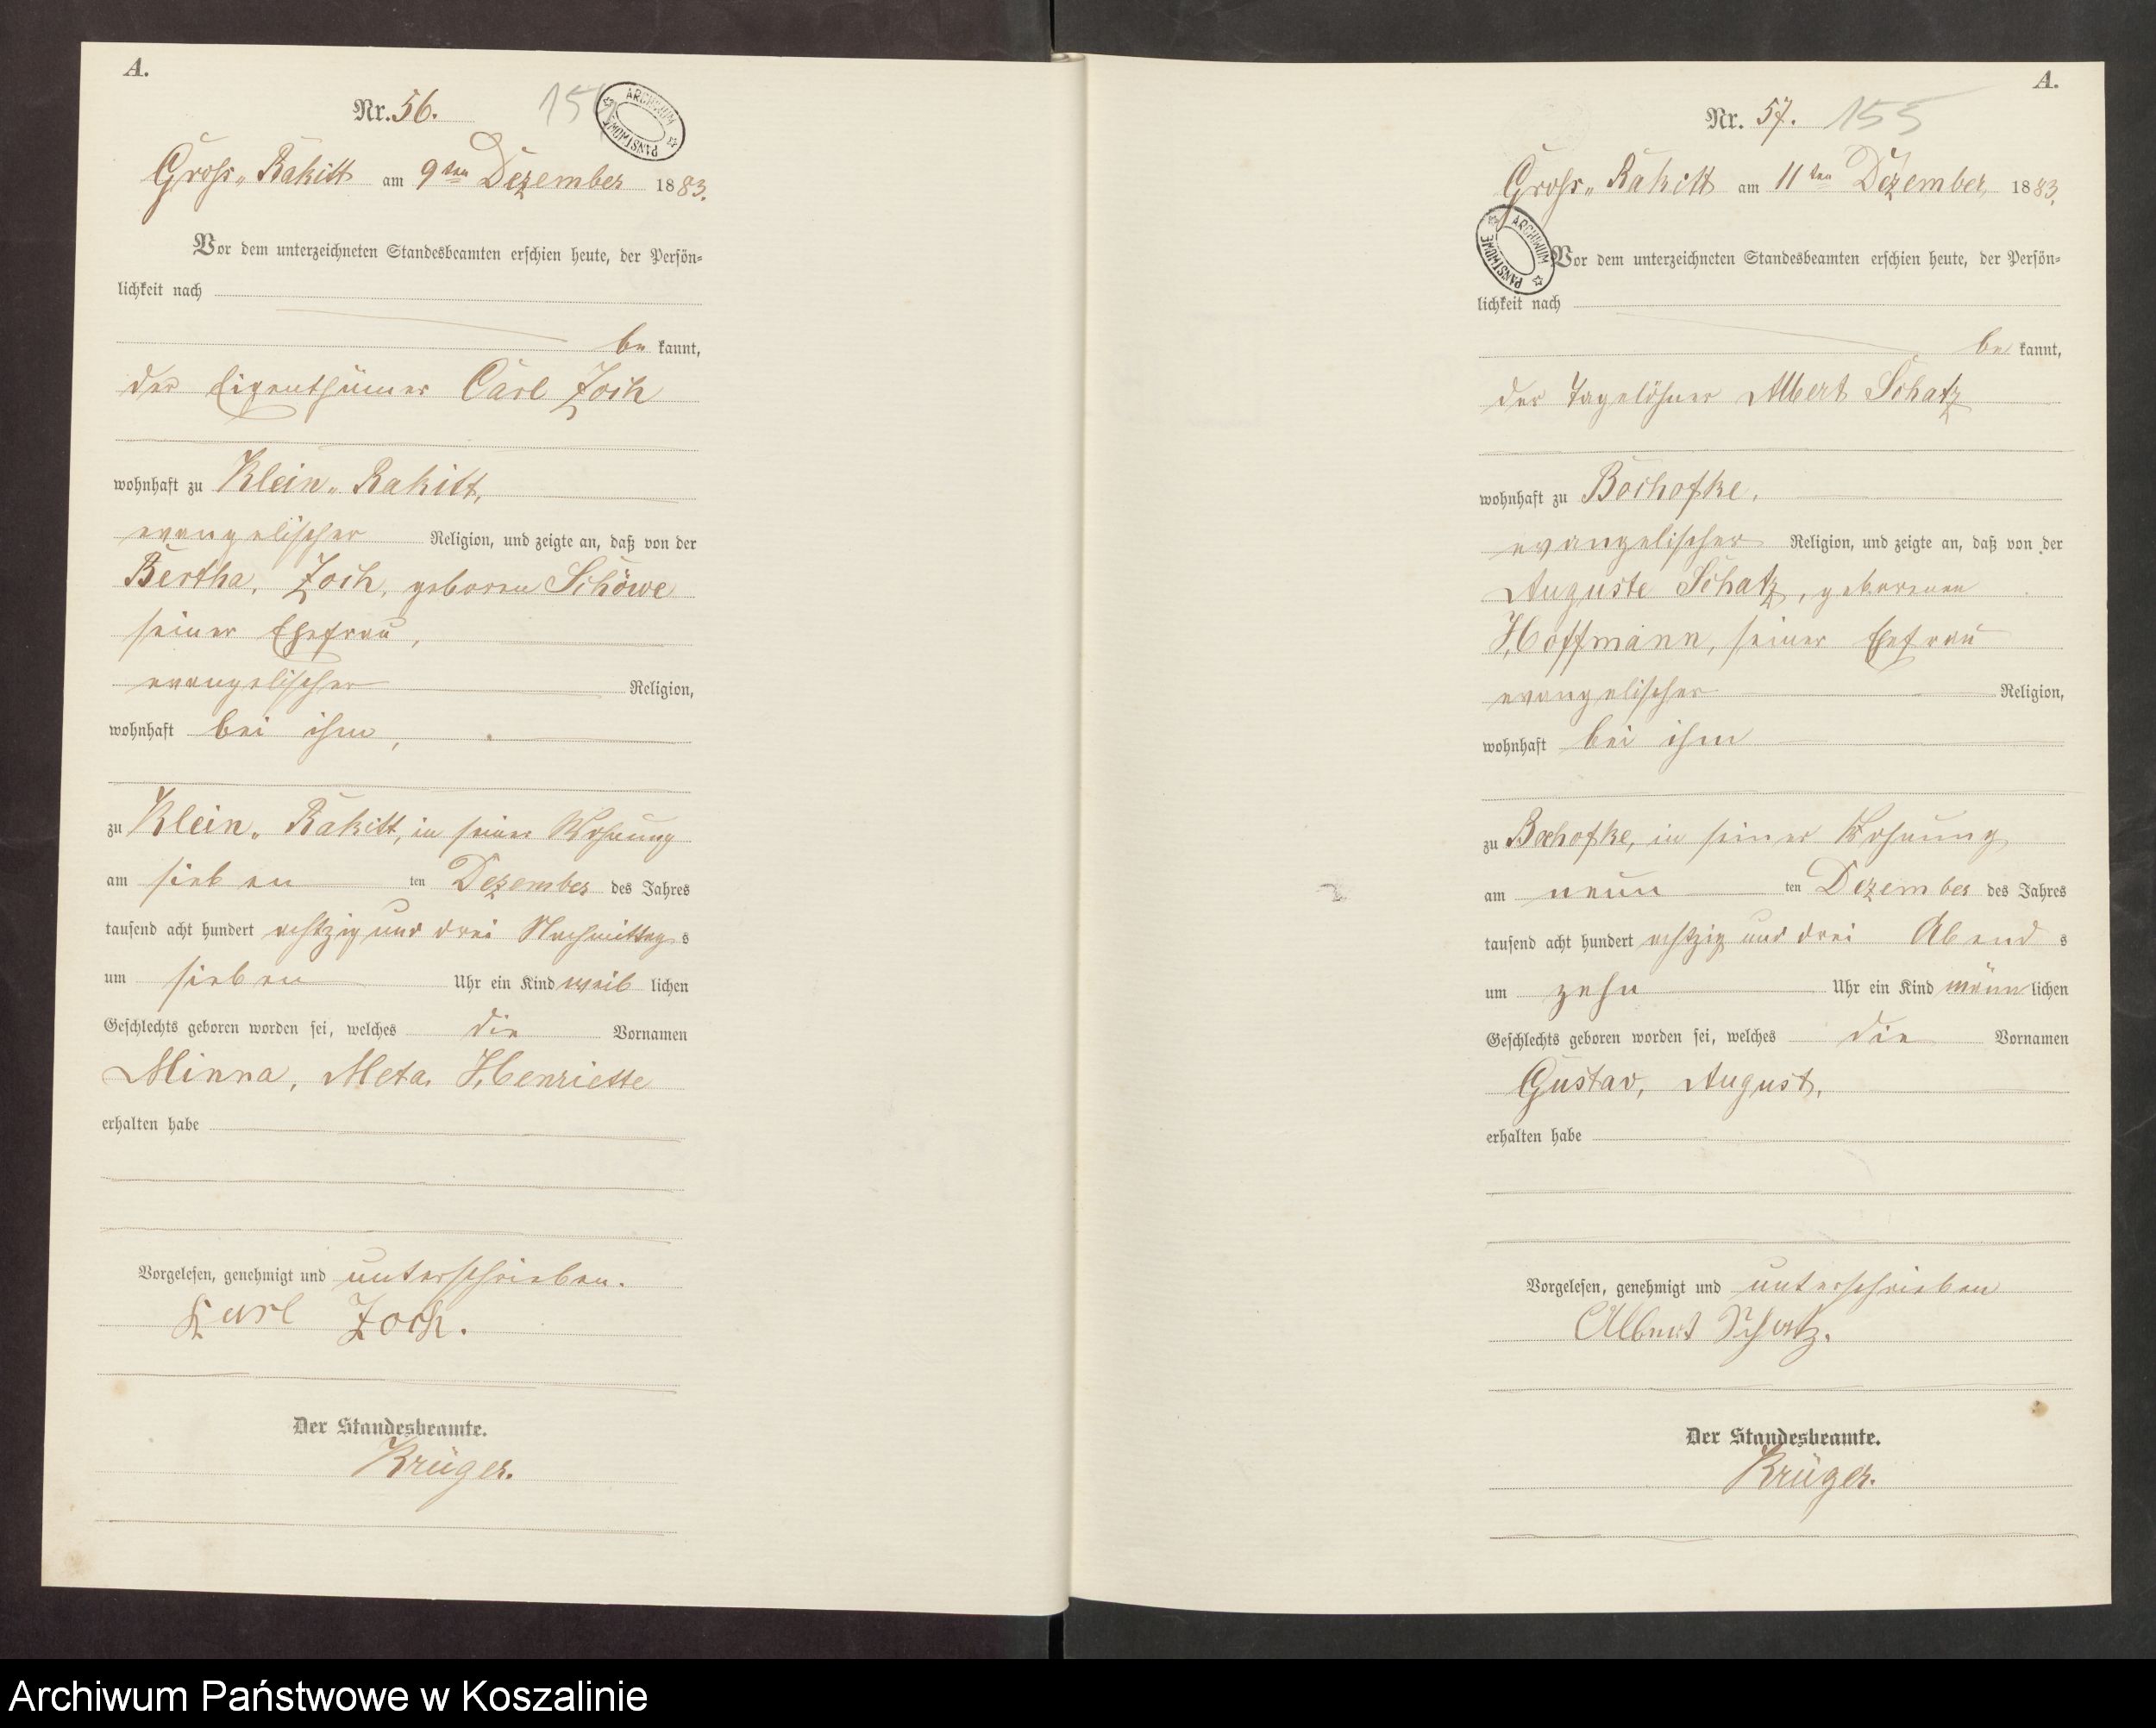 A.
Nr. 56.
Gross„ Rakitt am 9ten Dezember 1883.
Vor dem unterzeichneten Standesbeamten erschien heute, der Persön=
lichkeit nach
be kannt,
der Eigenthümer Carl Zoch
wohnhaft zu Klein„ Rakitt,
evangelischer Religion, und zeigte an, daß von der
Bertha, Zoch, geboren Schöwe
seiner Ehefrau,
evangelischer Religion,
wohnhaft bei ihm,
zu Klein„ Rakitt, in seiner Wohnung
am sieben ten Dezember des Jahres
tausend acht hundert achtzig und drei Nachmittag s
um sieben Uhr ein Kind weib lichen
Geschlechts geboren worden sei, welches die Vornamen
Minna, Meta, Henriette
erhalten habe
Vorgelesen, genehmigt und unterschrieben.
Karl Zoch.
Der Standesbeamte.
Krüger.
ARCHIWUM PAŃSTWOWE
A.
Nr. 57. 155
Gross„ Rakitt am 11ten Dezember 1883.
ARCHIWUM PAŃSTWOWE
Vor dem unterzeichneten Standesbeamten erschien heute, der Persön=
lichkeit nach
be kannt,
der Tagelöhner Albert Schatz
wohnhaft zu Bochofke,
evangelischer Religion, und zeigte an, daß von der
Auguste Schatz, geborenen
Hoffmann, seiner Ehefrau
evangelischer Religion,
wohnhaft bei ihm
zu Bochofke, in seiner Wohnung
am neun ten Dezember des Jahres
tausend acht hundert achtzig und drei Abend s
um zehn Uhr ein Kind männ lichen
Geschlechts geboren worden sei, welches die Vornamen
Gustav, August,
erhalten habe
Vorgelesen, genehmigt und unterschrieben
Albert Schatz.
Der Standesbeamte.
Krüger.
Archiwum Państwowe w Koszalinie